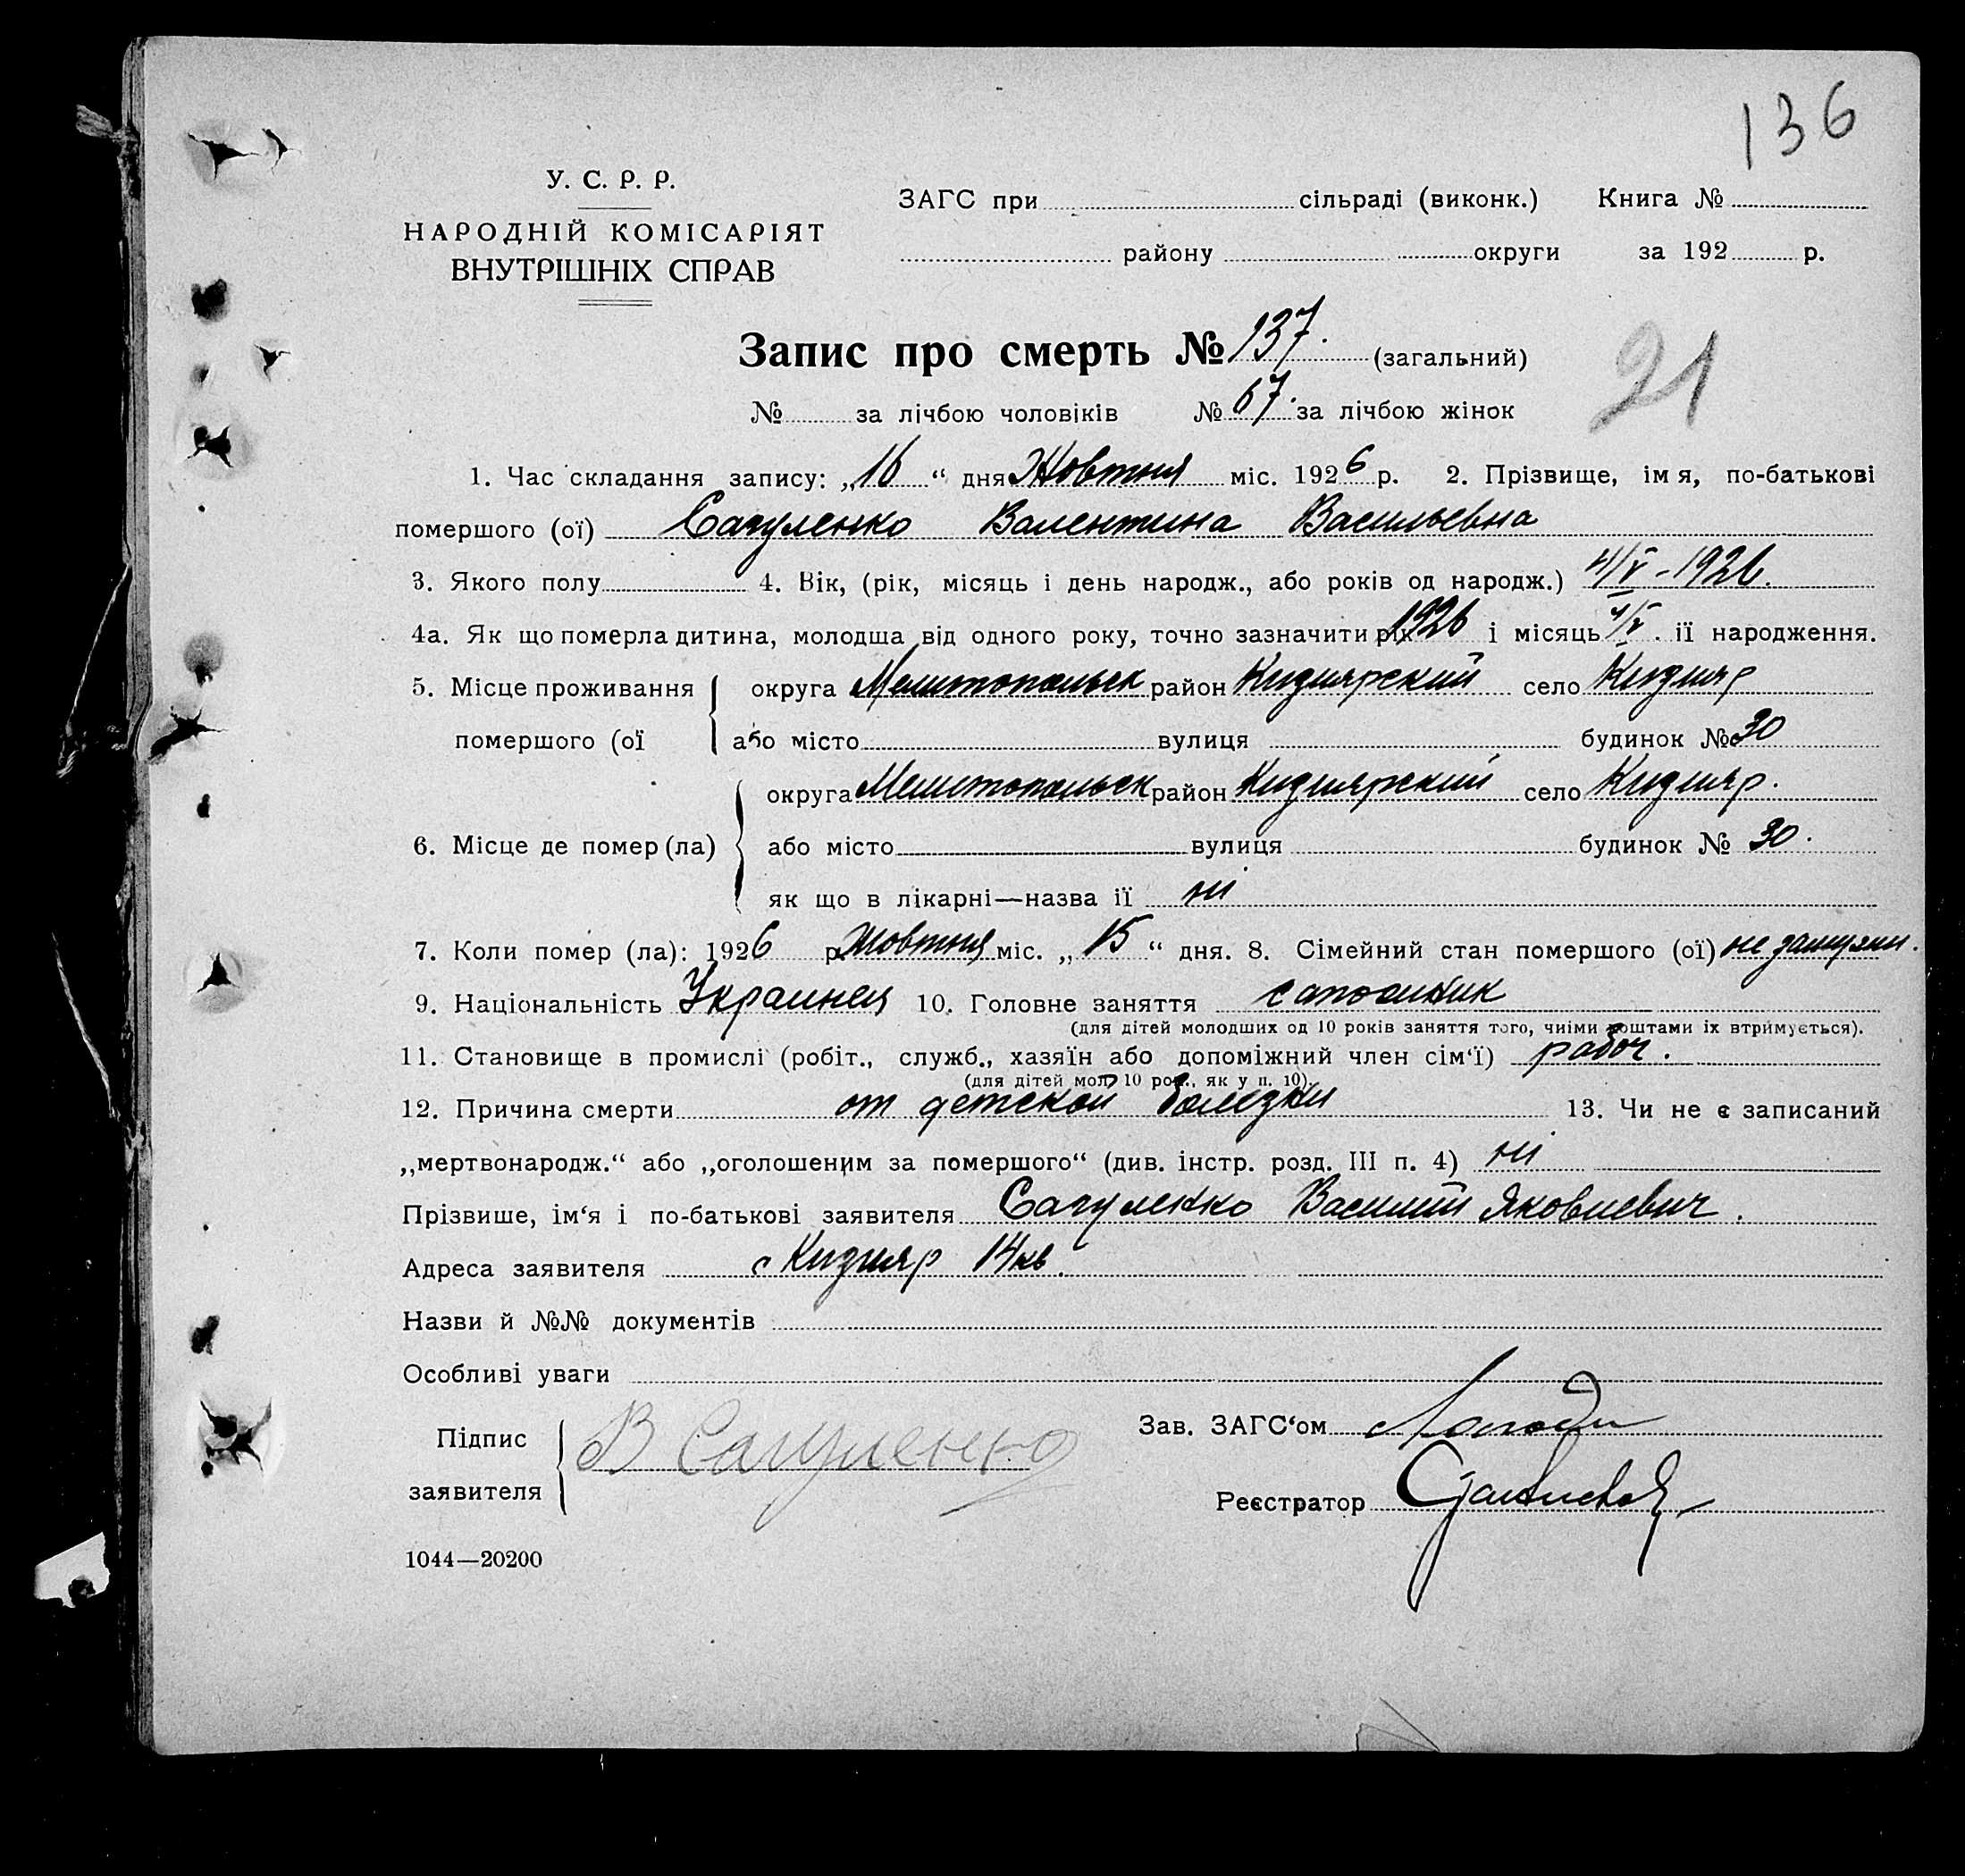 136
У. С. Р. Р.
НАРОДНІЙ КОМІСАРІЯТ
ВНУТРІШНІХ СПРАВ
ЗАГС при сільраді (виконк.) Книга №
району округи за 192 р.
Запис про смерть № 137. (загальний)
21
№ за лічбою чоловіків № 67. за лічбою жінок
1. Час складання запису: „16“ дня Жовтня міс. 1926 р. 2. Прізвище, імя, по-батькові
помершого (ої) Сагуленко Валентина Васильевна
3. Якого полу 4. Вік, (рік, місяць і день народж., або років од народж.) 4/V-1926.
4а. Як що померла дитина, молодша від одного року, точно зазначити рік 1926 і місяць 4/V. її народження.
5. Місце проживання округа Мелитопольск район Кизиярский село Кизияр
помершого (ої або місто вулиця будинок № 30
округа Мелитопольск район Кизиярский село Кизияр.
6. Місце де помер (ла) або місто вулиця будинок № 30.
як що в лікарні—назва ії ні
7. Коли помер (ла): 1926 р. Жовтня міс. „15“ дня. 8. Сімейний стан помершого (ої) не замужня.
9. Національність 10. Головне заняття сапожник
(для дітей молодших од 10 років заняття того, чиїми коштами іх втримується).
11. Становище в промислі (робіт., служб., хазяїн або допоміжний член сім‘ї) рабоч.
(для дітей мол. 10 рок., як у п. 10).
12. Причина смерти от детской болезни 13. Чи не є записаний
„мертвонародж.“ або „оголошеним за помершого“ (див. інстр. розд. III п. 4) ні
Прізвише, ім‘я і по-батькові заявителя Сагуленко Василий Яковлевич.
Адреса заявителя с Кизияр 14 кв.
Назви й №№ документів
Особливі уваги
Підпис
заявителя
В Сагуленко
Зав. ЗАГС‘ом
Реєстратор
1044—20200